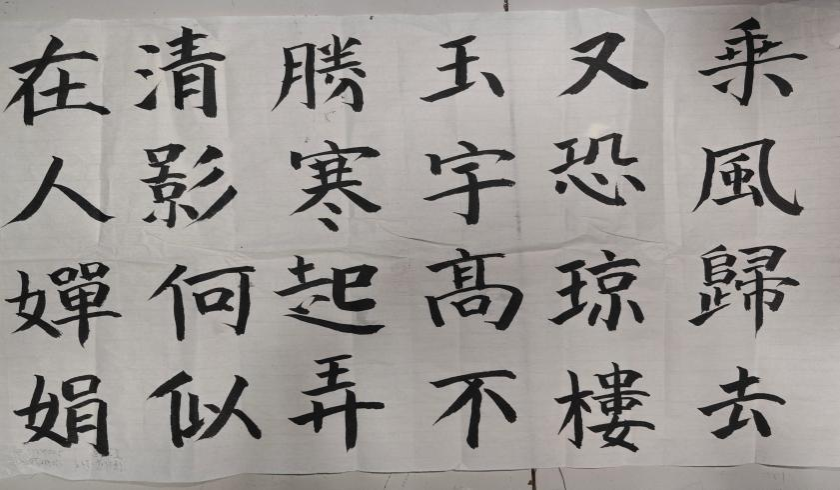 乘風歸去
又恐瓊樓
玉宇髙不
勝寒起弄
清影何似
在人嬋娟